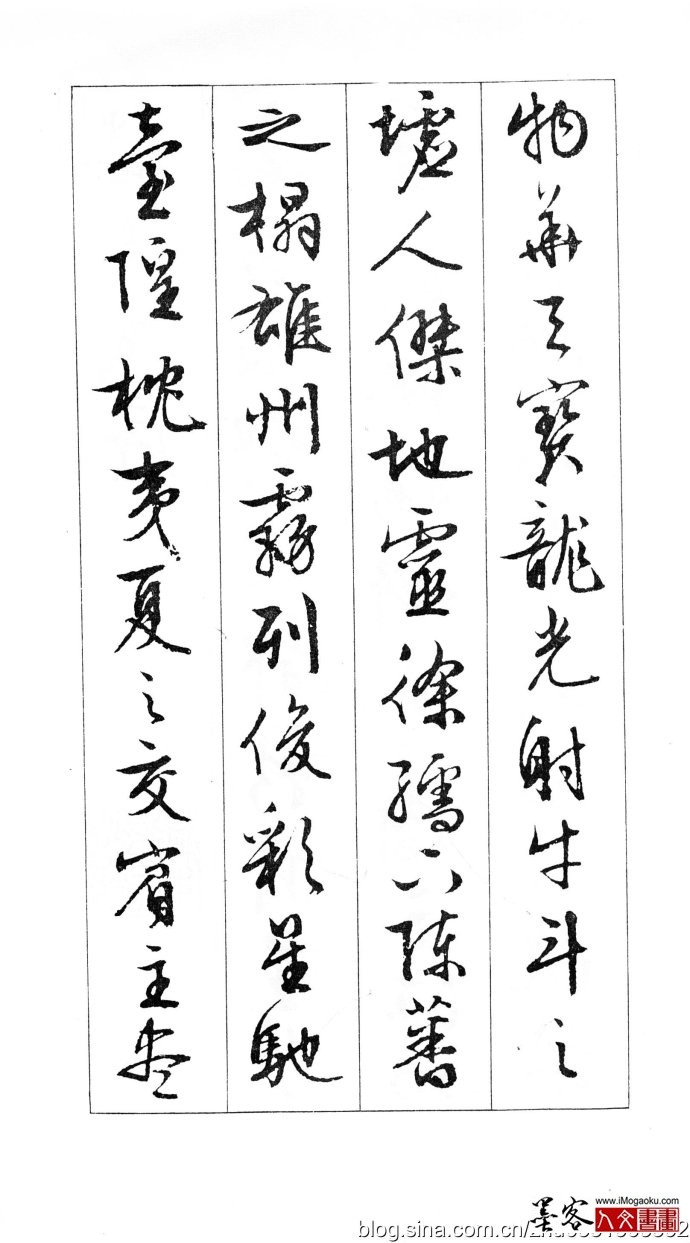 物華天寶龍光射牛斗之
墟人傑地靈徐孺下陳蕃
之榻雄州霧列俊彩星馳
臺隍枕夷夏之交賓主盡
www.iMogaoku.com
墨客
人文書畫